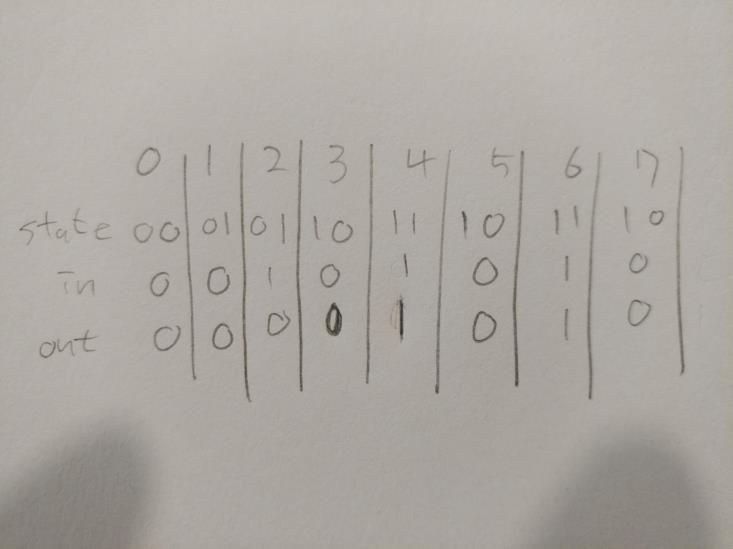 0 1 2 3 4 5 6 7
state 00 01 01 10 11 10 11 10
in 0 0 1 0 1 0 1 0
out 0 0 0 0 1 0 1 0